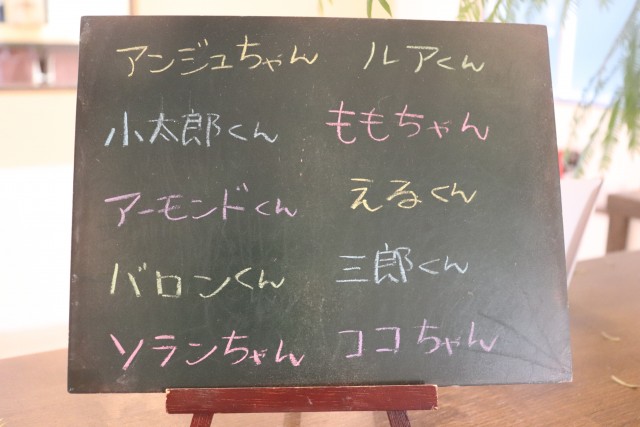 アンジュちゃん ルアくん
小太郎くん ももちゃん
アーモンドくん えるくん
バロンくん 三郎くん
ソランちゃん ココちゃん